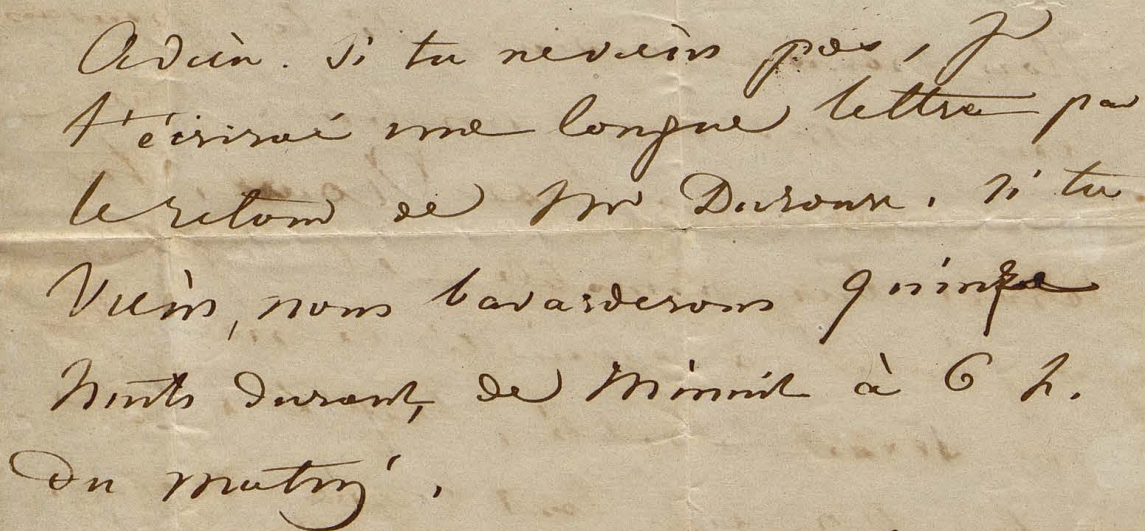 Adieu. Si tu ne viens pas, je
t'écrirai une longue lettre par
le retour de Mr Duroux. Si tu
Viens, nous bavarderons quinze
Nuits durant, de Minuit à 6 h.
du matin.